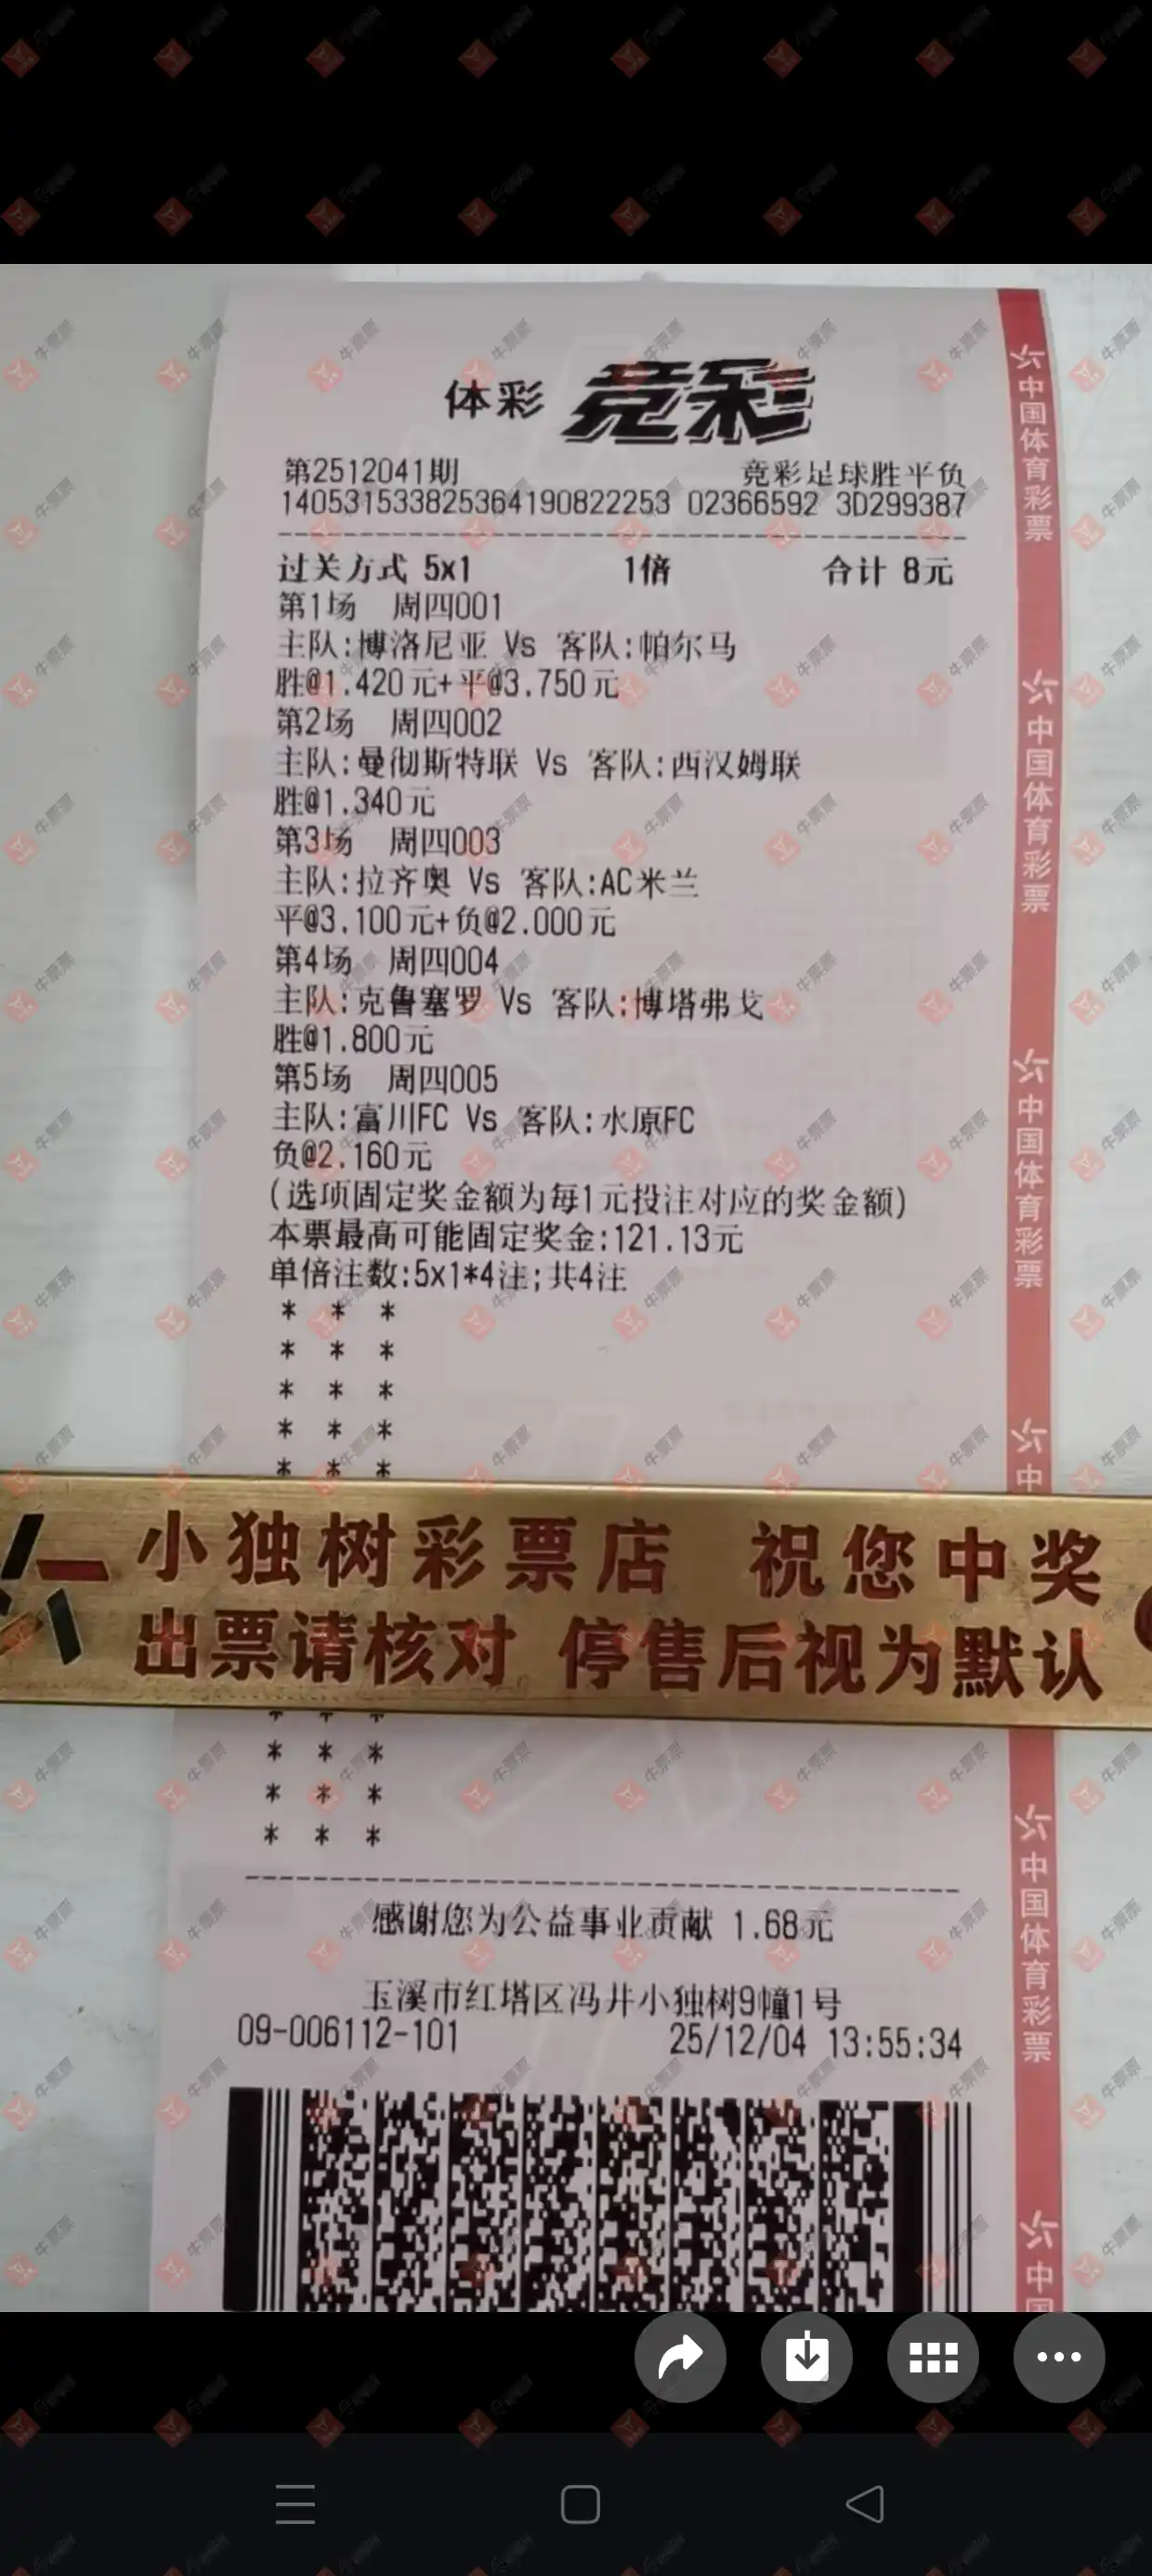 体彩 竞彩
第2512041期 竞彩足球胜平负
140531533825364190822253 02366592 3D299387
过关方式 5x1 1倍 合计 8元
第1场 周四001
主队:博洛尼亚 Vs 客队:帕尔马
胜@1.420元+平@3.750元
第2场 周四002
主队:曼彻斯特联 Vs 客队:西汉姆联
胜@1.340元
第3场 周四003
主队:拉齐奥 Vs 客队:AC米兰
平@3.100元+负@2.000元
第4场 周四004
主队:克鲁塞罗 Vs 客队:博塔弗戈
胜@1.800元
第5场 周四005
主队:富川FC Vs 客队:水原FC
负@2.160元
(选项固定奖金额为每1元投注对应的奖金额)
本票最高可能固定奖金:121.13元
单倍注数:5x1*4注;共4注
* * *
* * *
* * *
* * *
* * *
小独树彩票店 祝您中奖
出票请核对 停售后视为默认
* * *
* * *
* * *
* * *
感谢您为公益事业贡献 1.68元
玉溪市红塔区冯井小独树9幢1号
09-006112-101 25/12/04 13:55:34
中国体育彩票
中国体育彩票
中国体育彩票
中
中国体育彩票
中国
牛票票